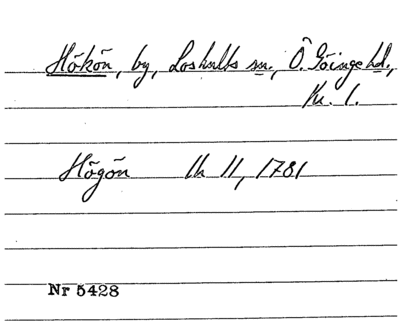 Hökön, by, Loshults sn., Ö. Göinge hd.,
Kr. l.
Högön lk 11, 1781
Nr 5428